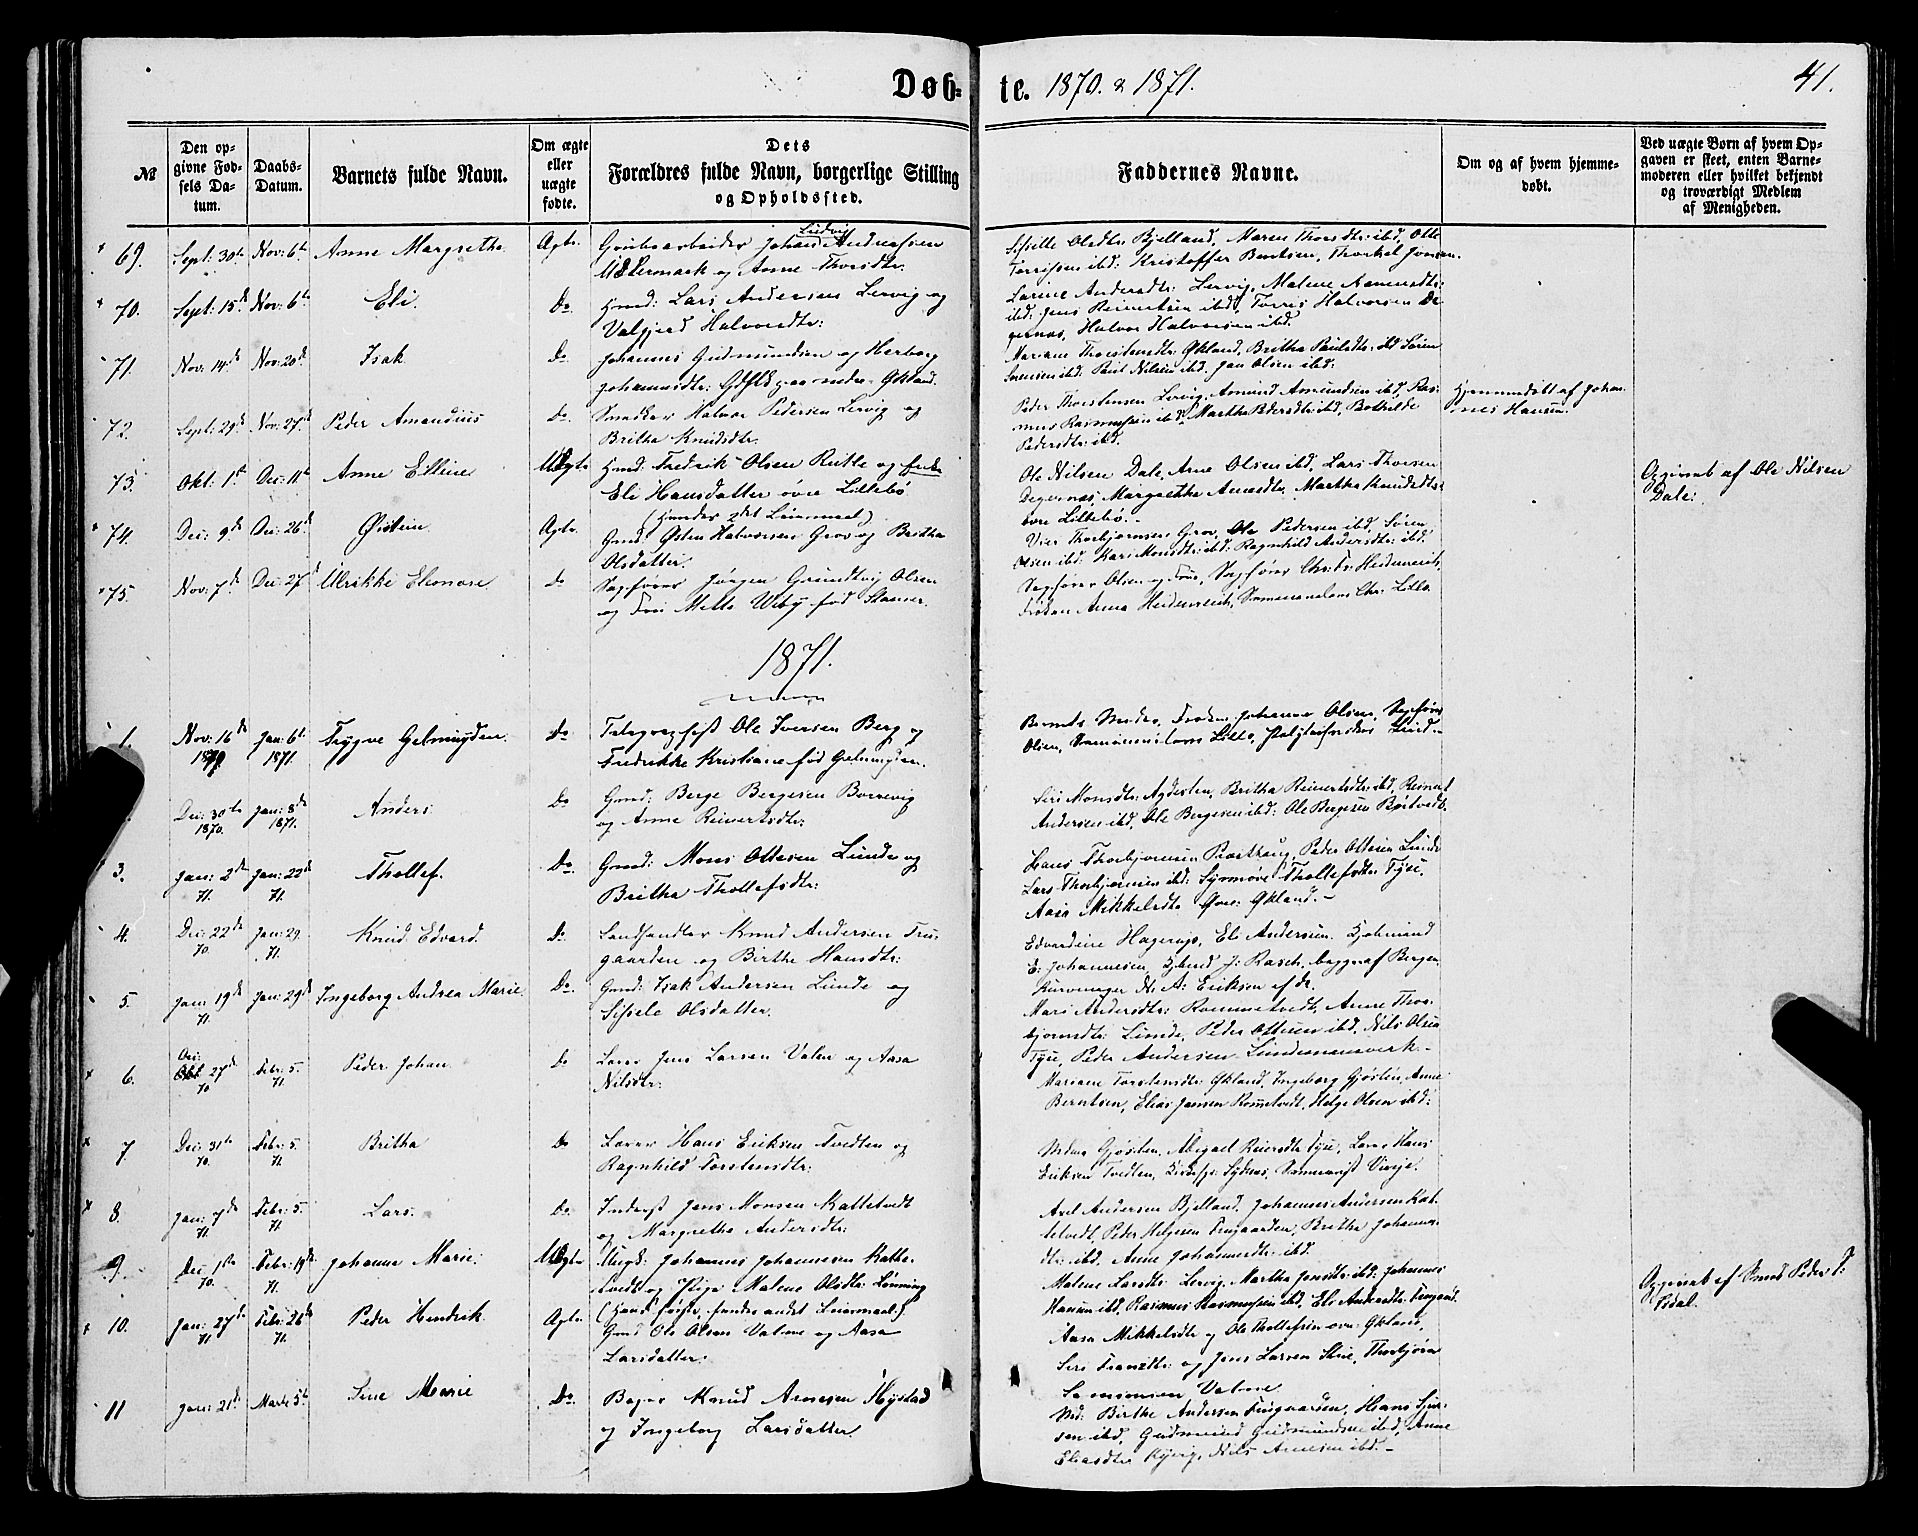 Døb-
te. 1870. & 1871.
41.
№
Den op-
givne Fød-
sels Da-
tum.
Daabs-
Datum.
Barnets fulde Navn.
Om ægte
eller
uægte
fødte.
Dets
Forældres fulde Navn, borgerlige Stilling
og Opholdssted.
Faddernes Navne.
Om og af hvem hjemme-
døbt.
Ved uægte Børn af hvem Op-
gaven er skeet, enten Barne-
moderen eller hvilket bekjendt
og troværdigt Medlem
af Menigheden.
69. Sept: 30te Nov: 6te Anne Margrethe Ægte Grubearbeider Johan Ludvig Andreassen
og Anne Thorsdtr.
Sissele Olsdtr. Bjelland, Maren Thorsdtr. ibd, Otto
Terrissen ibd: Kristoffer Bentsen, Thorkel Jonsen.
70. Sept: 15de Nov: 6te Eli. Do Gmd: Lars Andersen Lervig og
Valgjerd Halvorsdtr:
Larine Andersdtr: Lervig, Malene Aamundsdtr:
ibd: Jens Reinertsen ibd, Torris Halvorsen De-
gernes, Halvor Halvorsen ibd.
71. Nov: 14de Nov: 20de Isak Do Johannes Gudmundsen og Herborg
Johannesdtr: Økland.
Mariane Thorstensdtr: Økland, Britha Paulsdtr. ibd Søren
Sørensen ibd. Paul Nilsen ibd. Jan Olsen ibd:
72. Sept: 29de Nov: 27de Peder Amandius Do Snedker Halvor Pedersen Lervig og
Britha Knudsdtr.
Peder Thorstensen Lervig, Amund Amundsen ibd, Ras-
mus Rasmussen ibd, Martha Pedersdtr: ibd, Bothilde
Pedersdtr: ibd.
Hjemmedøbt af Johan-
nes Hansen.
73. Okt: 1ste Dec: 11te Anne Elline Uægte Gmd: Fredrik Olsen Rutle og
Eli Hansdatter øvre Lillebø
(Hendes 2det Leiermaal)
Ole Nilsen Dale, Arne Olsen ibd, Lars Thorsen
Degernes, Margrethe Arnesdtr. Martha Knudsdtr:
øvre Lillebø.-
Opgivet af Ole Nilsen
Dale:
74. Dec: 9de Dec: 26de Østein Ægte Gmd: Østen Halvorsen Grov og Britha
Olsdatter.
Vier Thorbjørnsen Grov, Ole Pedersen ibd, Søren
Olsen ibd: Kari Monsdtr: ibd: Ragnhild Andersdtr: ibd.
75. Nov: 7de Dec: 27de Ulrikke Elonore Do Sagfører Jørgen Grundtvig Olsen
og Fru Mette Viby fød Stamer.
Sagfører Olsen og Frue, Sagfører Chr. Fr. Heidenreich,
Frøken Anna Heidenreich, Chr. Lillo.
1871.
1. Nov: 16de 1870 Jan: 6te 1871. Trygve Gelmuyden. Do Telegrafist Ole Iversen Berg og
Fredrikke Kristiane fød Gelmuyden.
Barnets Moder, Frøken Johanne Olsen, Sagfører
Olsen, Lillo, Lund.-
Dec: 30te 1870. Jan: 8de 1871. Anders Do Gmd: Berge Bergesen Borrevig
og Anne Reinertsdtr:
Siri Monsdtr: Agdesten, Britha Reinertsdtr: ibd, Reinert
Andersen ibd, Ole Bergesen ibd: Ole Bergesen Børtvedt.
3. Jan: 2den 71. Jan: 22de 71. Thollef. Do Gmd: Mons Ottesen Lunde og
Britha Thollefsdtr:
Hans Thorbjørnsen Præsthaug, Peder Ottesen Lunde
Lars Thorbjørnsen ibd: Synnøve Thollefsdtr: Tyse,
Aasa Mikkelsdtr. Økland.-
4. Dec: 22de 70. Jan: 29. 71. Knud Edvard. Do Landhandler Knud Andersen Tru-
gaarden og Birthe Hansdtr:
Edvardine Hagerup, Eli Andersen.
E: Johannesen, J: Rasch, begge af Bergen
A: Eriksen af do.
5. Jan: 19de 71. Jan: 29de Ingeborg Andrea Marie. Do. Gmd: Isak Andersen Lunde og
Sissele Olsdatter.
Mari Andersdtr: Rommetvedt, Anne Thor-
bjørnsdtr: Lunde, Peder Ottesen ibd, Nils Olsen
Tyse, Peder Andersen Lundemannsverk.-
6. Dec: 27de 70 Febr: 5. 71. Peder Johan Do Lærer Jens Larsen Valen og Aasa
Nilsdtr:
Mariane Torstensdtr: Økland, Ingeborg Gjøsten, Anne
Berentsen, Elias Jensen Rommetvedt, Helge Olsen ibd:
7 Dec: 31te 70. Febr: 5. 71. Britha Do Lærer Hans Eriksen Tvedten og
Ragnhild Torstensdtr:
Gjøsten, Abigael Reiersdtr Tyse, Lærer Hans
Eriksen Tvedten, Sydnes,
8. Jan: 7de 71. Febr: 5. 71. Lars. Do. Inderst Jens Monsen Kattetvedt
og Margrethe Andersdtr:
Axel Andersen Bjelland, Johannes Andersen Kat-
tetvedt, Peder Helgesen Trugaarden, Britha Johannes-
dtr: ibd. Anne Johannesdtr: ibd.
9. Dec: 1ste 70. Febr: 19de 71. Johanne Marie. Uægte Ungk: Johannes Johannesen Katte-
tvedt og Pige Malene Olsdtr: Lønning
(Hans første, hendes andet Leiermaal.)
Malene Larsdtr: Lervig, Martha Jensdtr: ibd: Johannes
Hansen ibd, Rasmus Rasmussen ibd, Eli Andersdtr. Trugaard.
Opgivet af Smed Peder T:
10. Jan: 27de 71 Febr: 26de 71. Peder Hendrik. Ægte Gmd Ole Olsen Valene og Aasa
Larsdatter:
Aasa Mikkelsdtr og Ole Thollefsen Økland,
Siri og Jens Larsen Thorbjørn
Samsonsen Valene
11 Jan: 21de Marts 5te Sine Marie Do. Bager Knud Arnesen Hystad
og Ingeborg Larsdatter.
Md: Birthe Andersen Trugaarden, Hans
sen ibd, Gudmund Gudmundsen ibd, Anne
Eliasdtr: Nils Arnesen ibd.-